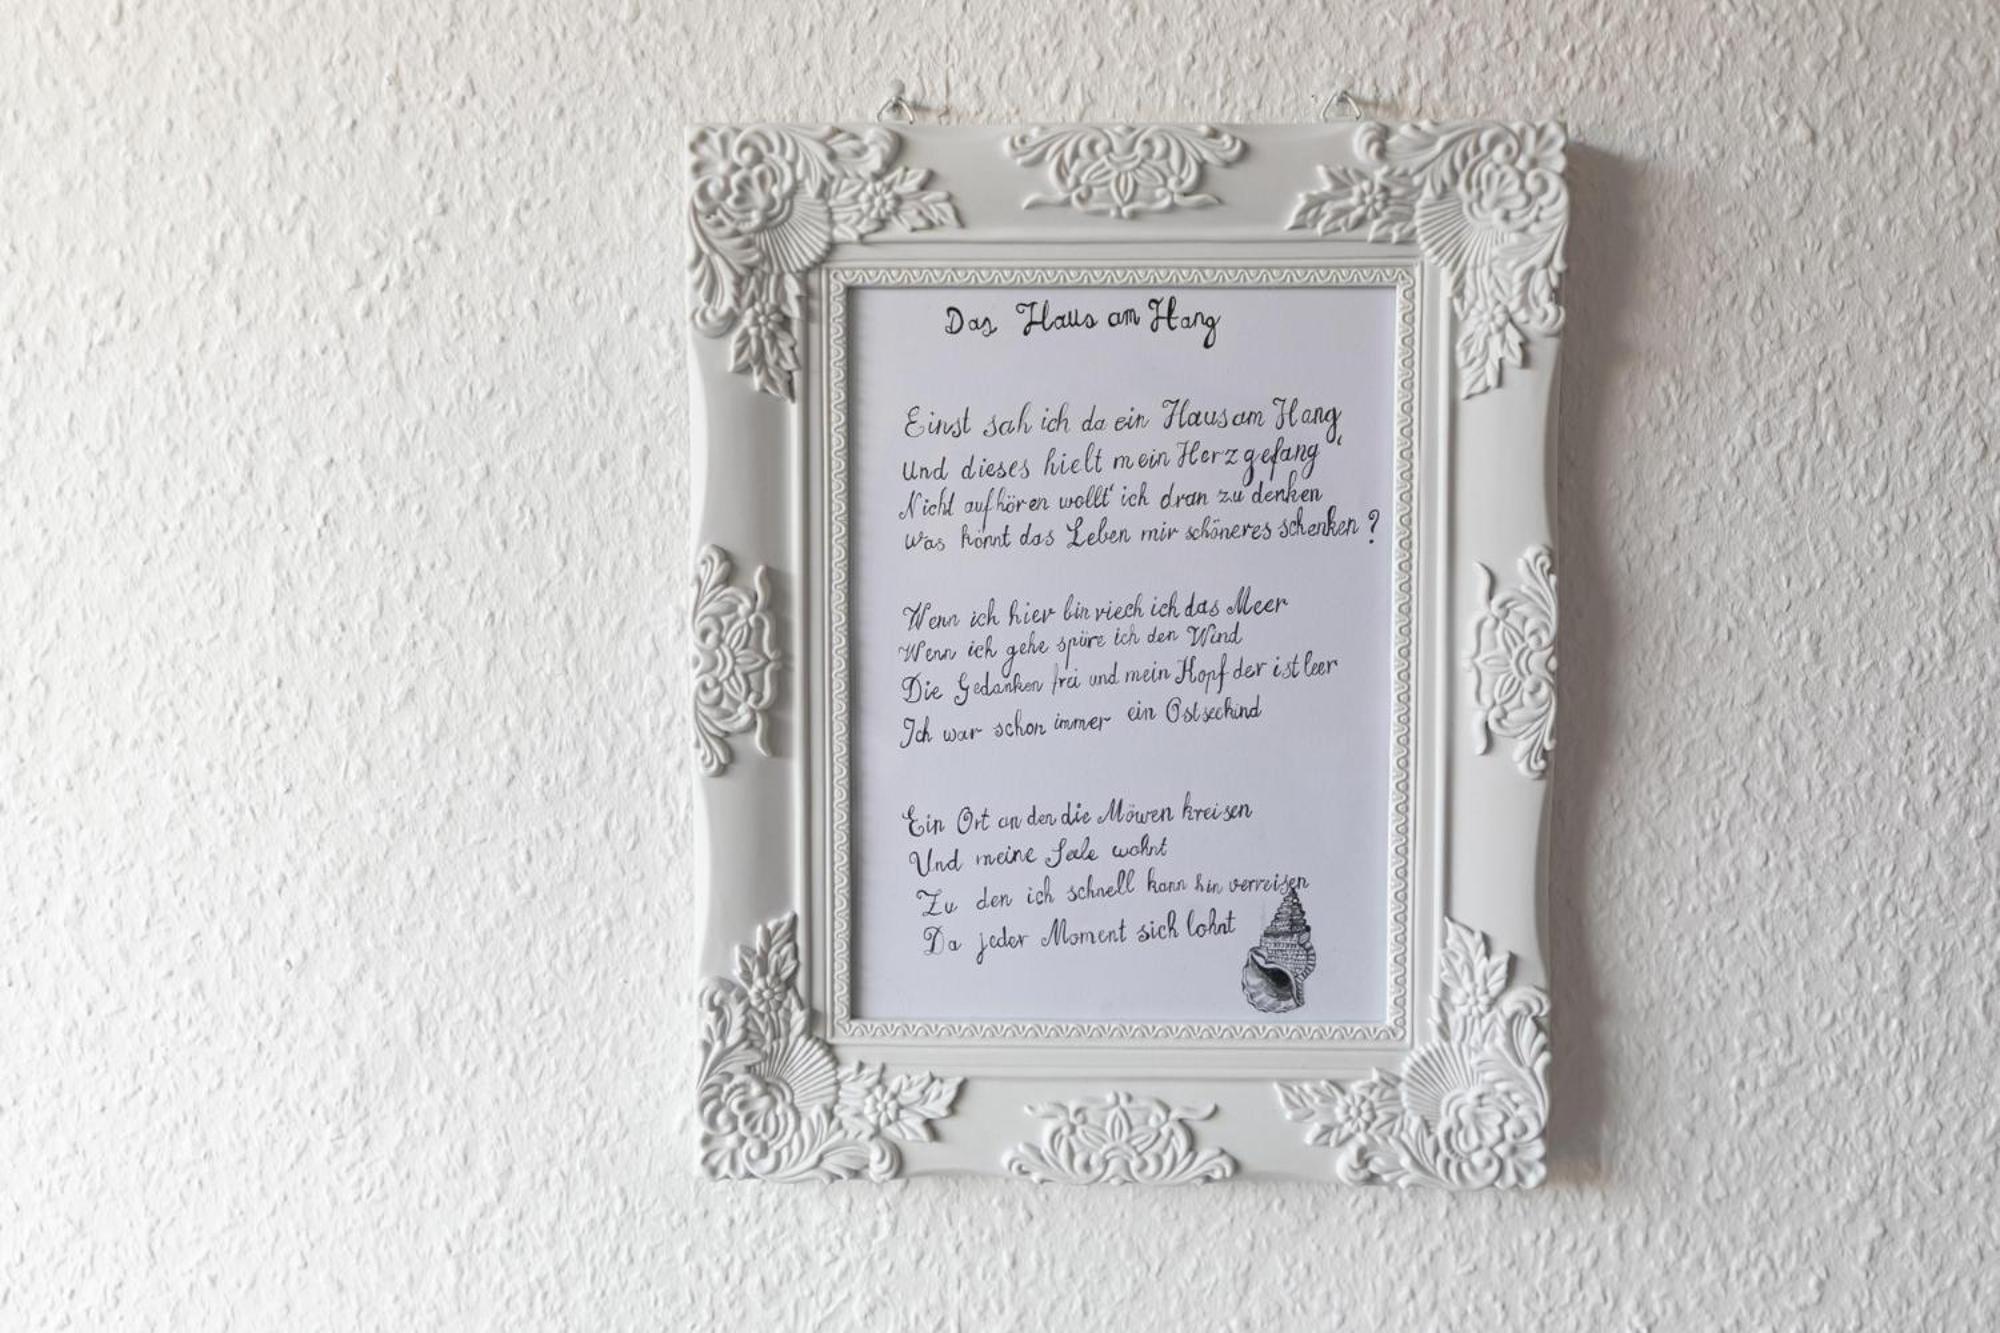 Das Haus am Hang
Einst sah ich da ein Haus am Hang
Und dieses hielt mein Herz gefang'
Nicht aufhören wollt' ich dran zu denken
Was könnt das Leben mir schöneres schenken?
Wenn ich hier bin riech ich das Meer
Wenn ich gehe spüre ich den Wind
Die Gedanken frei und mein Kopf der ist leer
Ich war schon immer ein Ostseekind
Ein Ort an den die Möwen kreisen
Und meine Seele wohnt
Zu den ich schnell kann hin verreisen
Da jeder Moment sich lohnt